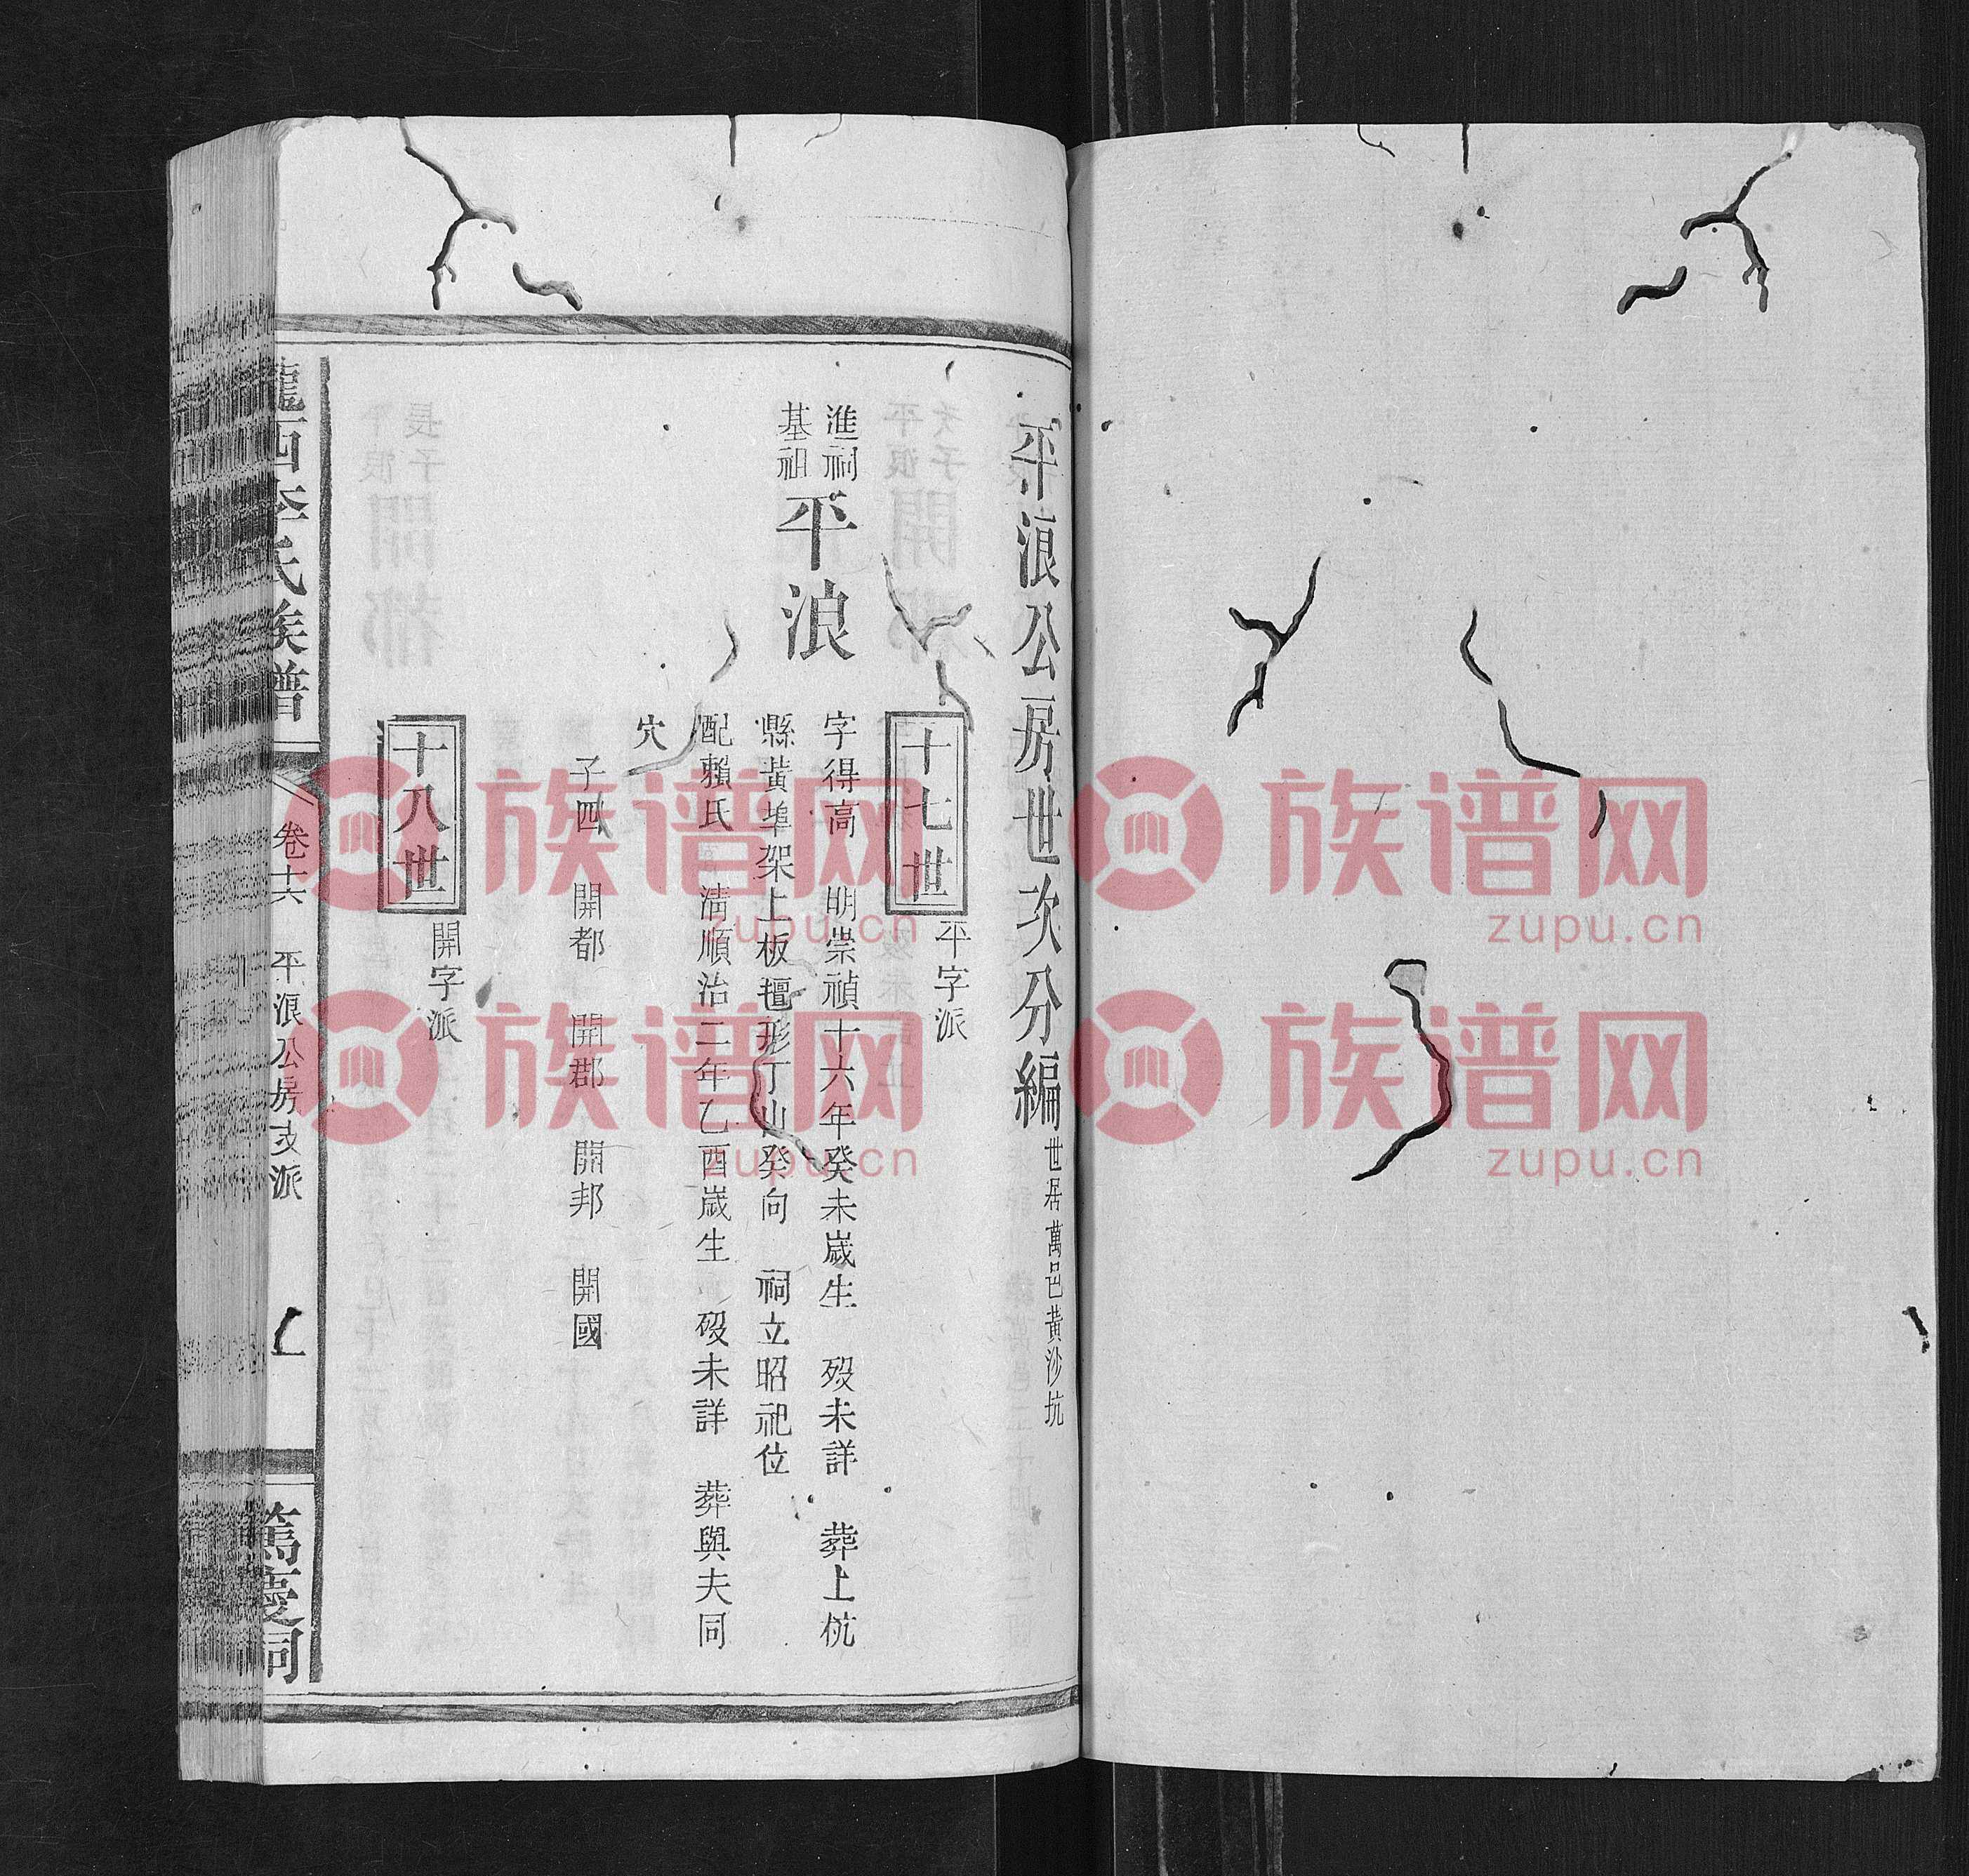 平浪公房世次分編 世居萬邑黃沙坑
十七世 平字派
進祠
基祖
平浪
字得高 明崇禎十六年癸未歲生 歿未詳 葬上杭
縣黃埠架上板氊形丁山癸向 祠立昭祀位
配賴氏 清順治二年乙酉歲生 歿未詳 葬與夫同
穴
子四 開都 開郡 開邦 開國
十八世 開字派
隴西李氏族譜
卷十六 平浪公房支派
篤慶祠
族谱网
zupu.cn
族谱网
zupu.cn
族谱网
zupu.cn
族谱网
zupu.cn